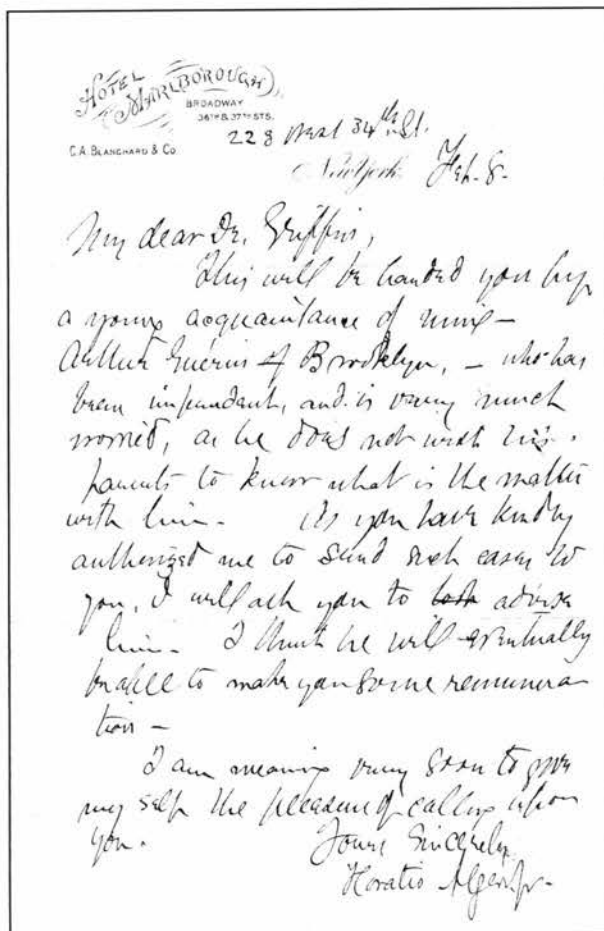 HOTEL
MARLBOROUGH,
BROADWAY
36TH & 37TH STS.
C.A. BLANCHARD & CO.
228 West 34th St.
New York Feb. 8.
My dear Dr. Griffin,
This will be handed you by
a young acquaintance of mine –
Arthur Guerin of Brooklyn, – who has
been imprudent, and is very much
worried, as he does not wish his
parents to know what is the matter
with him. As you have kindly
authorized me to send such cases to
you, I will ask you to advise
him. I think he will eventually
be able to make you some remunera
tion –
I am meaning very soon to give
myself the pleasure of calling upon
you.
Yours Sincerely,
Horatio Alger Jr.